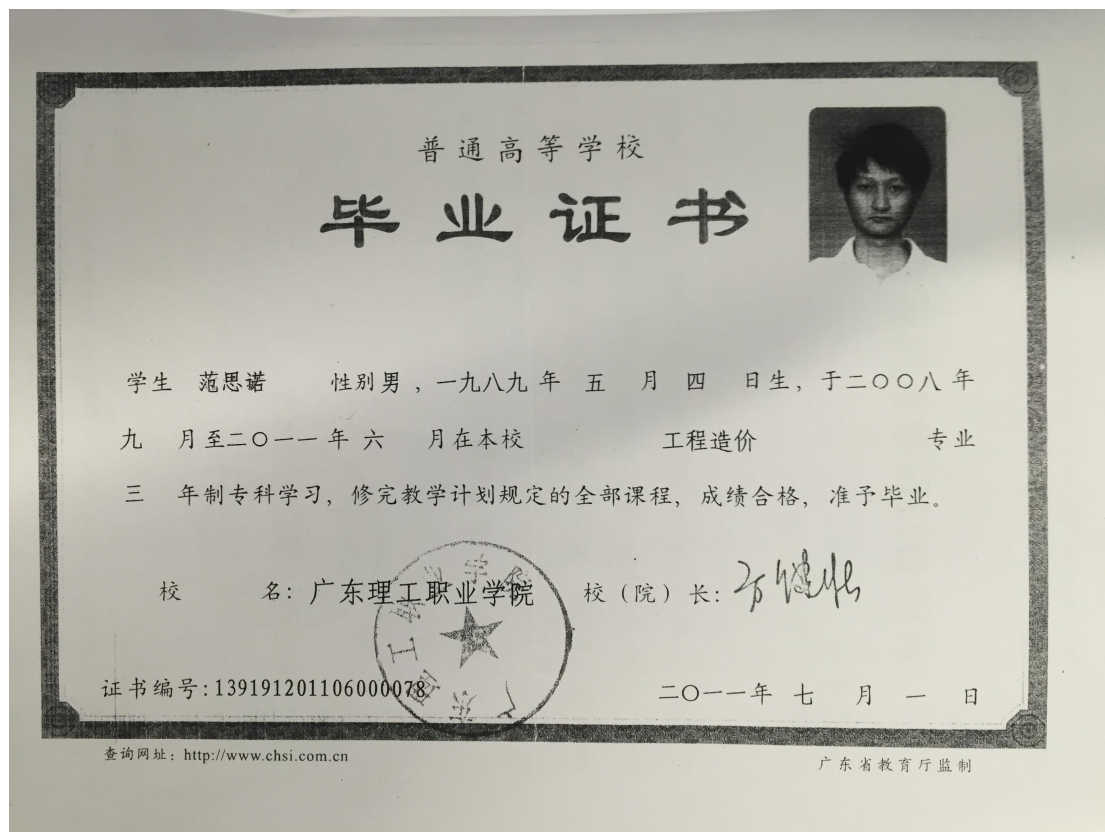 普通高等学校
毕业证书
学生 范思诺 性别男，一九八九年 五 月 四 日生，于二〇〇八年
九 月至二〇一一年 六 月在本校 工程造价 专业
三 年制专科学习，修完教学计划规定的全部课程，成绩合格，准予毕业。
校 名：广东理工职业学院 校（院）长：
广东理工职业学院
证书编号：139191201106000078 二〇一一年 七 月 一 日
查询网址：http://www.chsi.com.cn
广东省教育厅监制